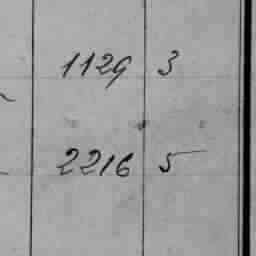 1129 3
2216 5